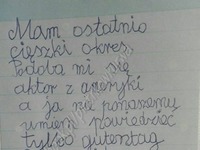 Mam ostatnio
cięszki okres
Podoba mi się
aktor z ameryki
a ja nie ponaszemu
umiem powiedzieć
tylko gutentag